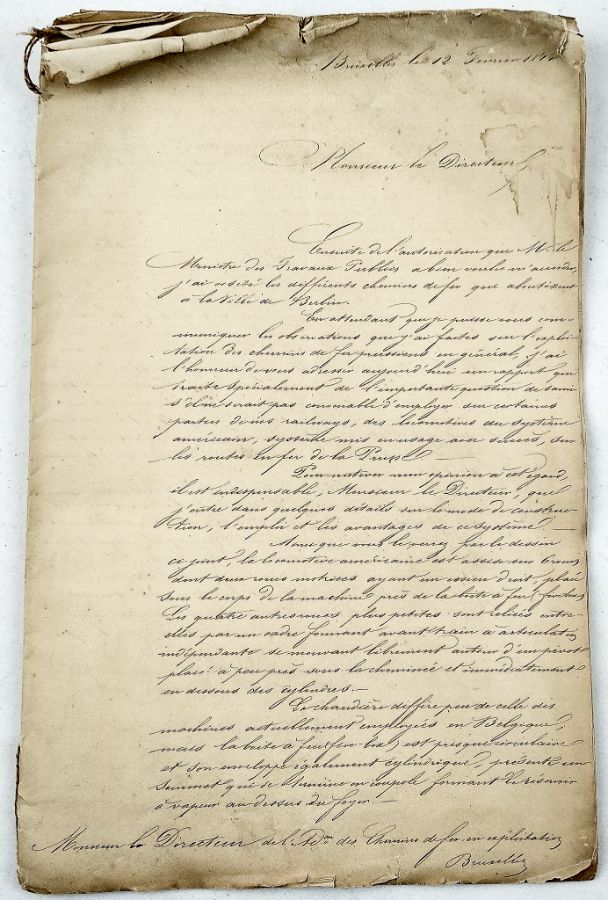 Bruxelles le 12 Fevrier 184
Monsieur le Directeur,
Ensuite de l'autorisation que Mr. le
Ministre des Travaux Publics a bien voulu m'accorder,
j'ai visité les différents chemins de fer que aboutissent
à la Ville de Berlin.
En attendant que je puisse vous com-
muniquer les observations que j'ai faites sur l'exploi-
tation des chemins de fer prussiens en général, j'ai
l'honneur de vous adresser aujourd'hui un rapport qui
traite spécialement de l'importante question de savoir
s'il ne serait pas convenable d'employer sur certaines
parties de nos railways, des locomotives du système
américain, système mis en usage avec succès, sur
les routes en fer de la Prusse. —
Pour motiver mon opinion à cet égard,
il est indispensable, Monsieur le Directeur, que
j'entre dans quelques détails sur le mode de construc-
tion, l'emploi et les avantages de ce système. —
Ainsi que vous le verrez par le dessin
ci joint, la locomotive américaine est assise sur 6 roues
dont deux roues motrices ayant un essieu droit, placé
sous le corps de la machine près de la boite à feu (fire box)
Les quatre autres roues plus petites sont reliées entre
elles par un cadre formant avant train à articulation
indépendante se mouvant librement autour d'un pivot
placé à peu près sous la cheminée et immédiatement
en dessous des cylindres. —
La chaudière diffère peu de celle des
machines actuellement employées en Belgique,
mais la boite à feu (fire box) est presque circulaire
et son enveloppe également cylindrique, présente un
sommet qui se termine en coupole formant le réservoir
à vapeur au dessus du foyer —
Monsieur le Directeur de l'Adon des Chemins de fer en exploitation
Bruxelles